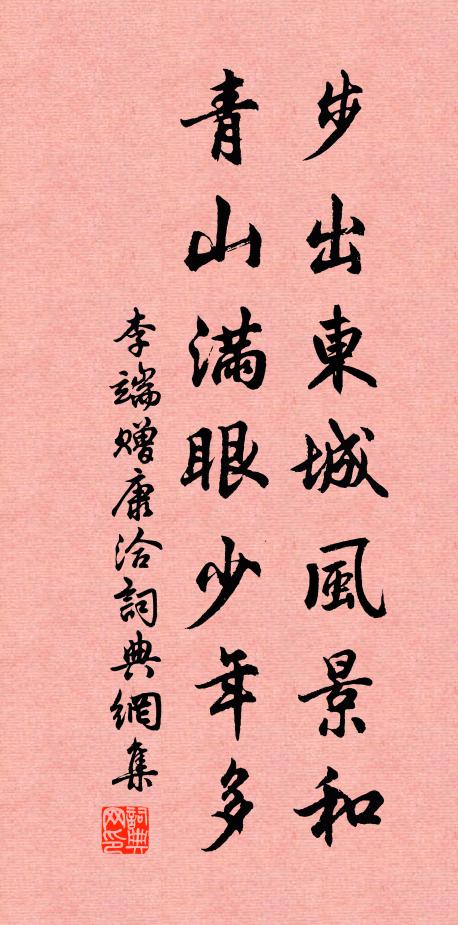 步出東城風景和
青山滿眼少年多
李端贈康洽詞典網集
詞典網印